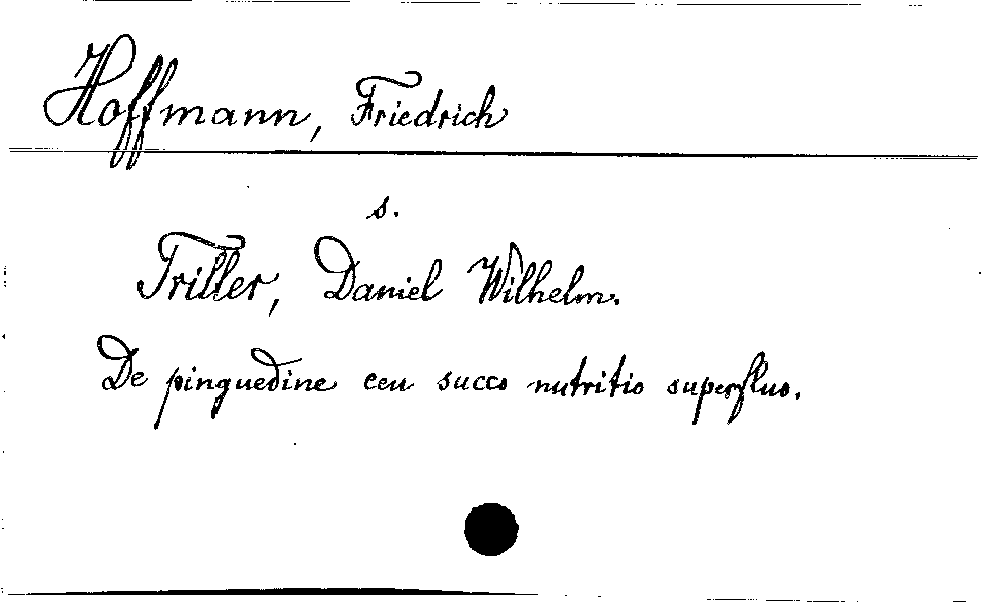 Hoffmann, Friedrich
s.
Triller, Daniel Wilhelm.
De pinguedine ceu succo nutritio superfluo.